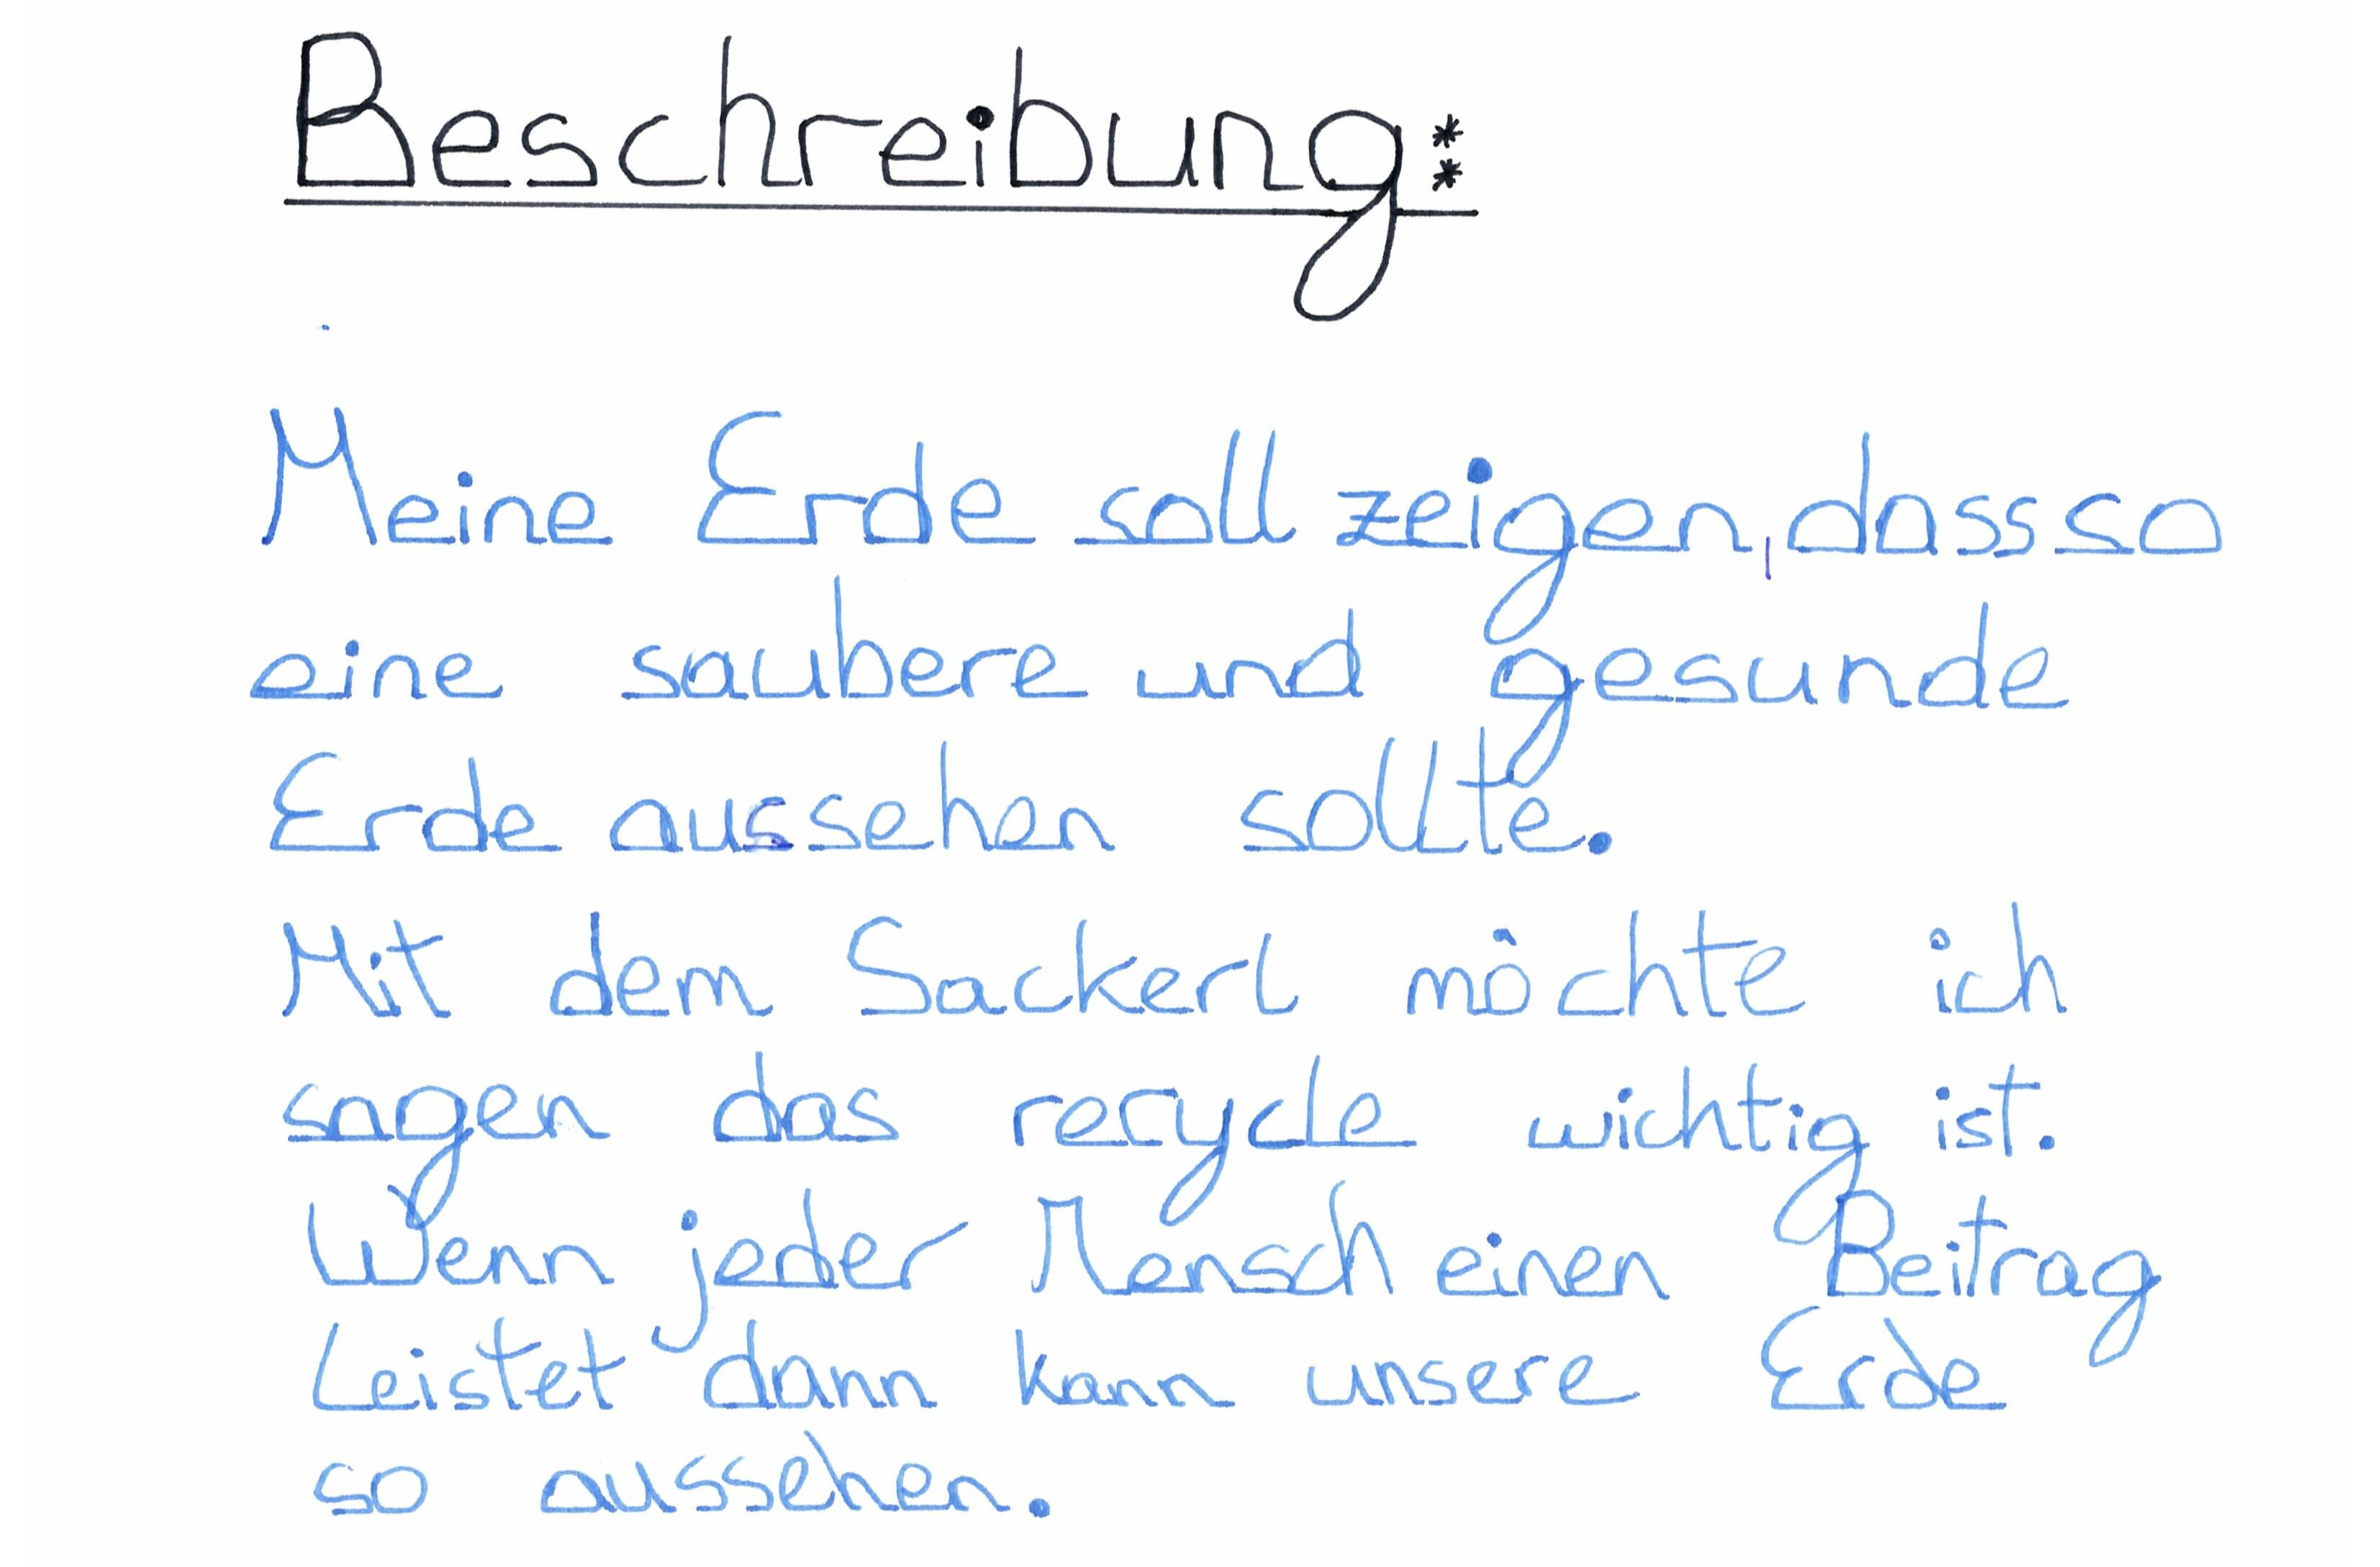 Beschreibung:
Meine Erde soll zeigen, dass so
eine saubere und gesunde
Erde aussehen sollte.
Mit dem Sackerl möchte ich
sagen das recycle wichtig ist.
Wenn jeder Mensch einen Beitrag
leistet dann kann unsere Erde
so aussehen.